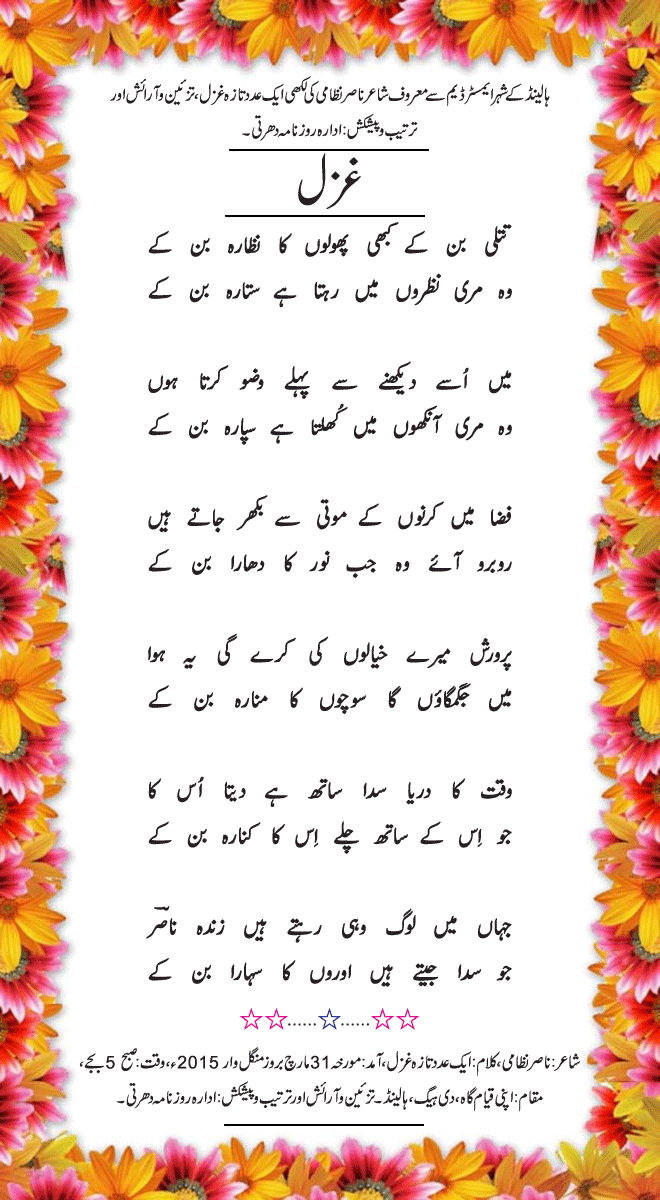 ہالینڈ کے شہر ایمسٹرڈیم سے معروف شاعر ناصر نظامی کی لکھی ایک عدد تازہ غزل، تزئین و آرائش اور
ترتیب و پیشکش: ادارہ روزنامہ دھرتی ۔
غزل
تتلی بن کے کبھی پھولوں کا نظارہ بن کے
وہ مری نظروں میں رہتا ہے ستارہ بن کے
میں اُسے دیکھنے سے پہلے وضو کرتا ہوں
وہ مری آنکھوں میں کُھلتا ہے سپارہ بن کے
فضا میں کرنوں کے موتی سے بکھر جاتے ہیں
روبرو آئے وہ جب نور کا دھارا بن کے
پرورش میرے خیالوں کی کرے گی یہ ہوا
میں جگمگاؤں گا سوچوں کا منارہ بن کے
وقت کا دریا سدا ساتھ ہے دیتا اُس کا
جو اِس کے ساتھ چلے اِس کا کنارہ بن کے
جہاں میں لوگ وہی رہتے ہیں زندہ ناصرؔ
جو سدا جیتے ہیں اوروں کا سہارا بن کے
☆☆......☆......☆☆
شاعر: ناصر نظامی، کلام: ایک عدد تازہ غزل، آمد: مورخہ 31 مارچ بروز منگل وار 2015ء، وقت: صبح 5 بجے،
مقام: اپنی قیام گاہ، دی ہیگ، ہالینڈ۔ تزئین و آرائش اور ترتیب و پیشکش: ادارہ روزنامہ دھرتی ۔